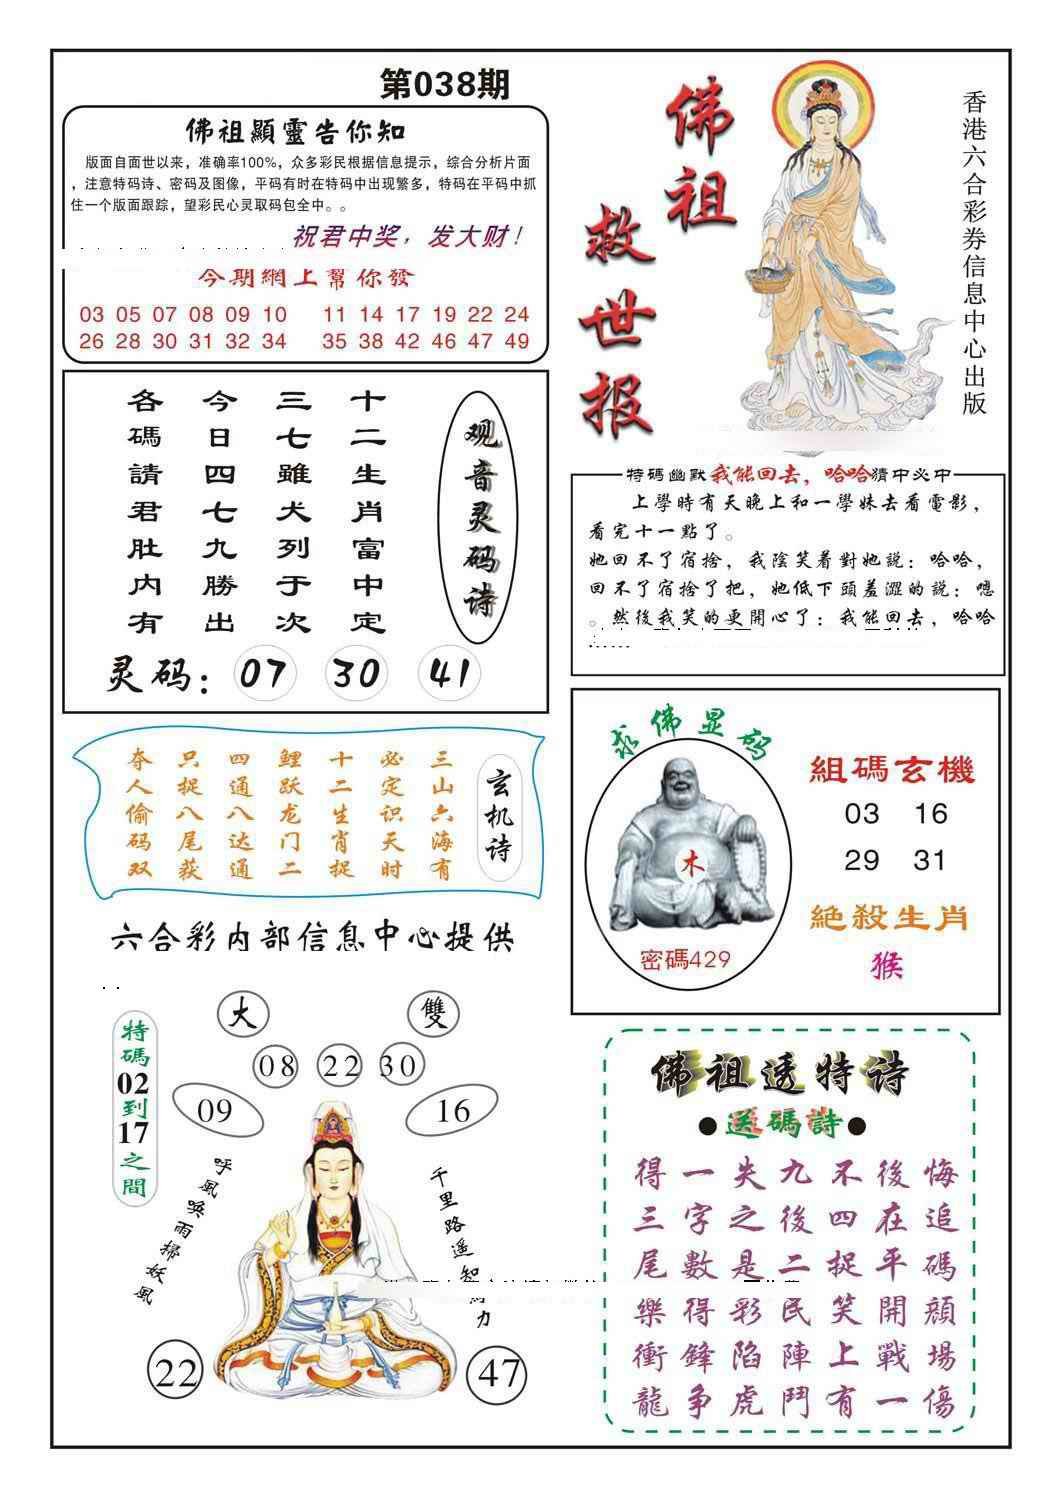 第038期
佛祖顯靈告你知
版面自面世以来，准确率100%，众多彩民根据信息提示，综合分析片面
，注意特码诗、密码及图像，平码有时在特码中出现繁多，特码在平码中抓
住一个版面跟踪，望彩民心灵取码包全中。。
祝君中奖，发大财！
今期網上幫你發
03 05 07 08 09 10 11 14 17 19 22 24
26 28 30 31 32 34 35 38 42 46 47 49
佛祖
救世报
香港六合彩券信息中心出版
观音灵码诗
十二生肖富中定
三七雖犬列于次
今日四七九勝出
各碼請君肚内有
灵码：07 30 41
特碼幽默我能回去，哈哈猜中必中
上學時有天晚上和一學妹去看電影，
看完十一點了。
她回不了宿捨，我陰笑着對她説：哈哈，
回不了宿捨了把，她低下頭羞澀的説：嗯
。然後我笑的更開心了：我能回去，哈哈
玄机诗
三山六海有
必定识天时
十二生肖捉
鲤跃龙门二
四通八达通
只捉八尾获
夺人偷码双
求佛显码
木
密碼429
組碼玄機
03 16
29 31
絕殺生肖
猴
六合彩内部信息中心提供
特碼02到17之間
大
雙
08
22
30
09
16
呼風唤雨掃妖風
千里路遥知
力
22
47
佛祖透特诗
●送碼詩●
得一失九不後悔
三字之後四在追
尾數是二捉平碼
樂得彩民笑開顔
衝鋒陷陣上戰場
龍争虎鬥有一傷